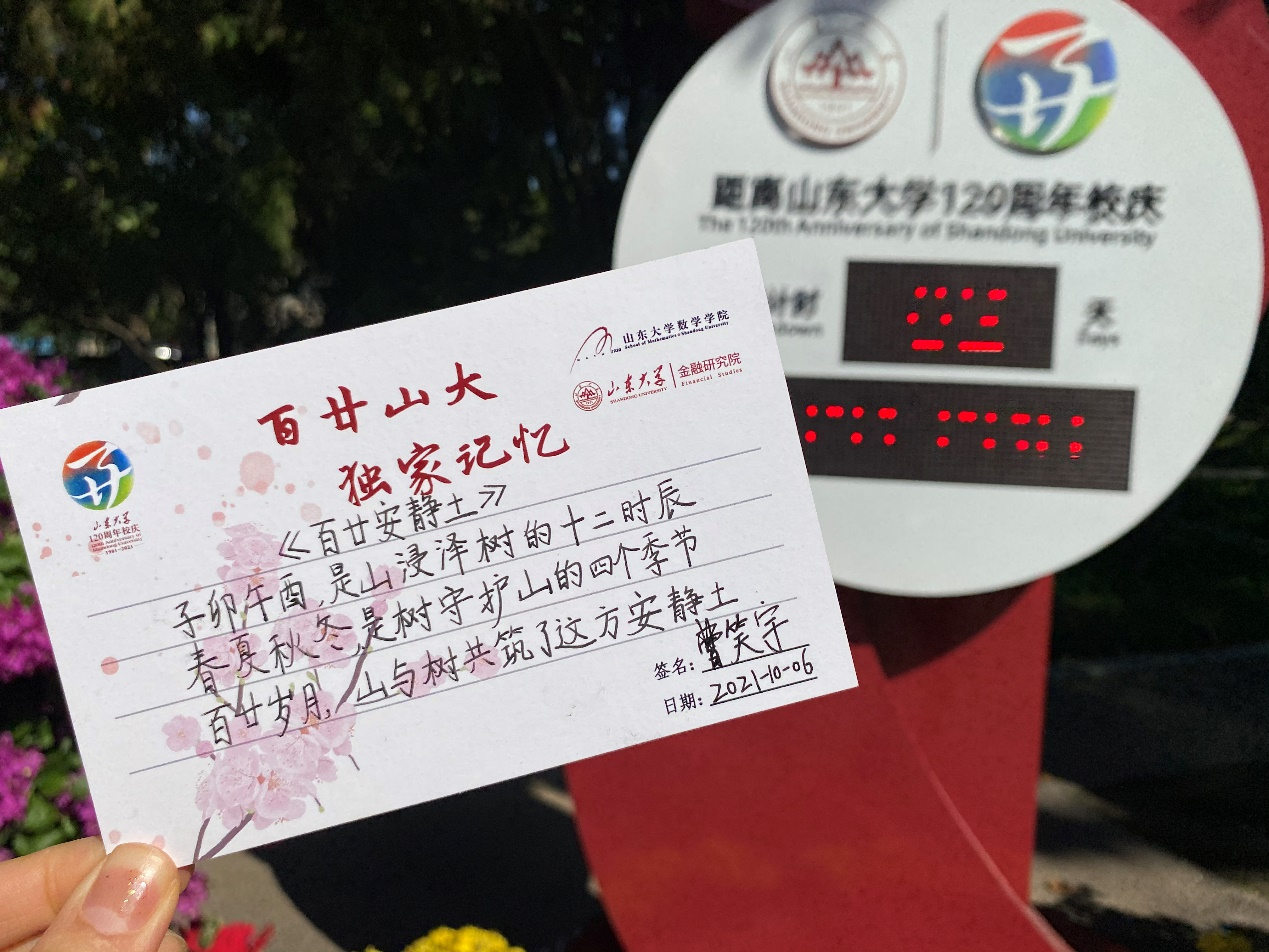 距离山东大学120周年校庆
The 120th Anniversary of Shandong University
计时
天
Days
山东大学数学学院
School of Mathematics Shandong University
山东大学 金融研究院
SHANDONG UNIVERSITY Financial Studies
百廿山大
独家记忆
山东大学
120周年校庆
120th Anniversary of
Shandong University
1901-2021
《百廿安静土》
子卯午酉,是山浸泽树的十二时辰
春夏秋冬,是树守护山的四个季节
百廿岁月,山与树共筑了这方安静土
签名:曹笑宇
日期:2021-10-06